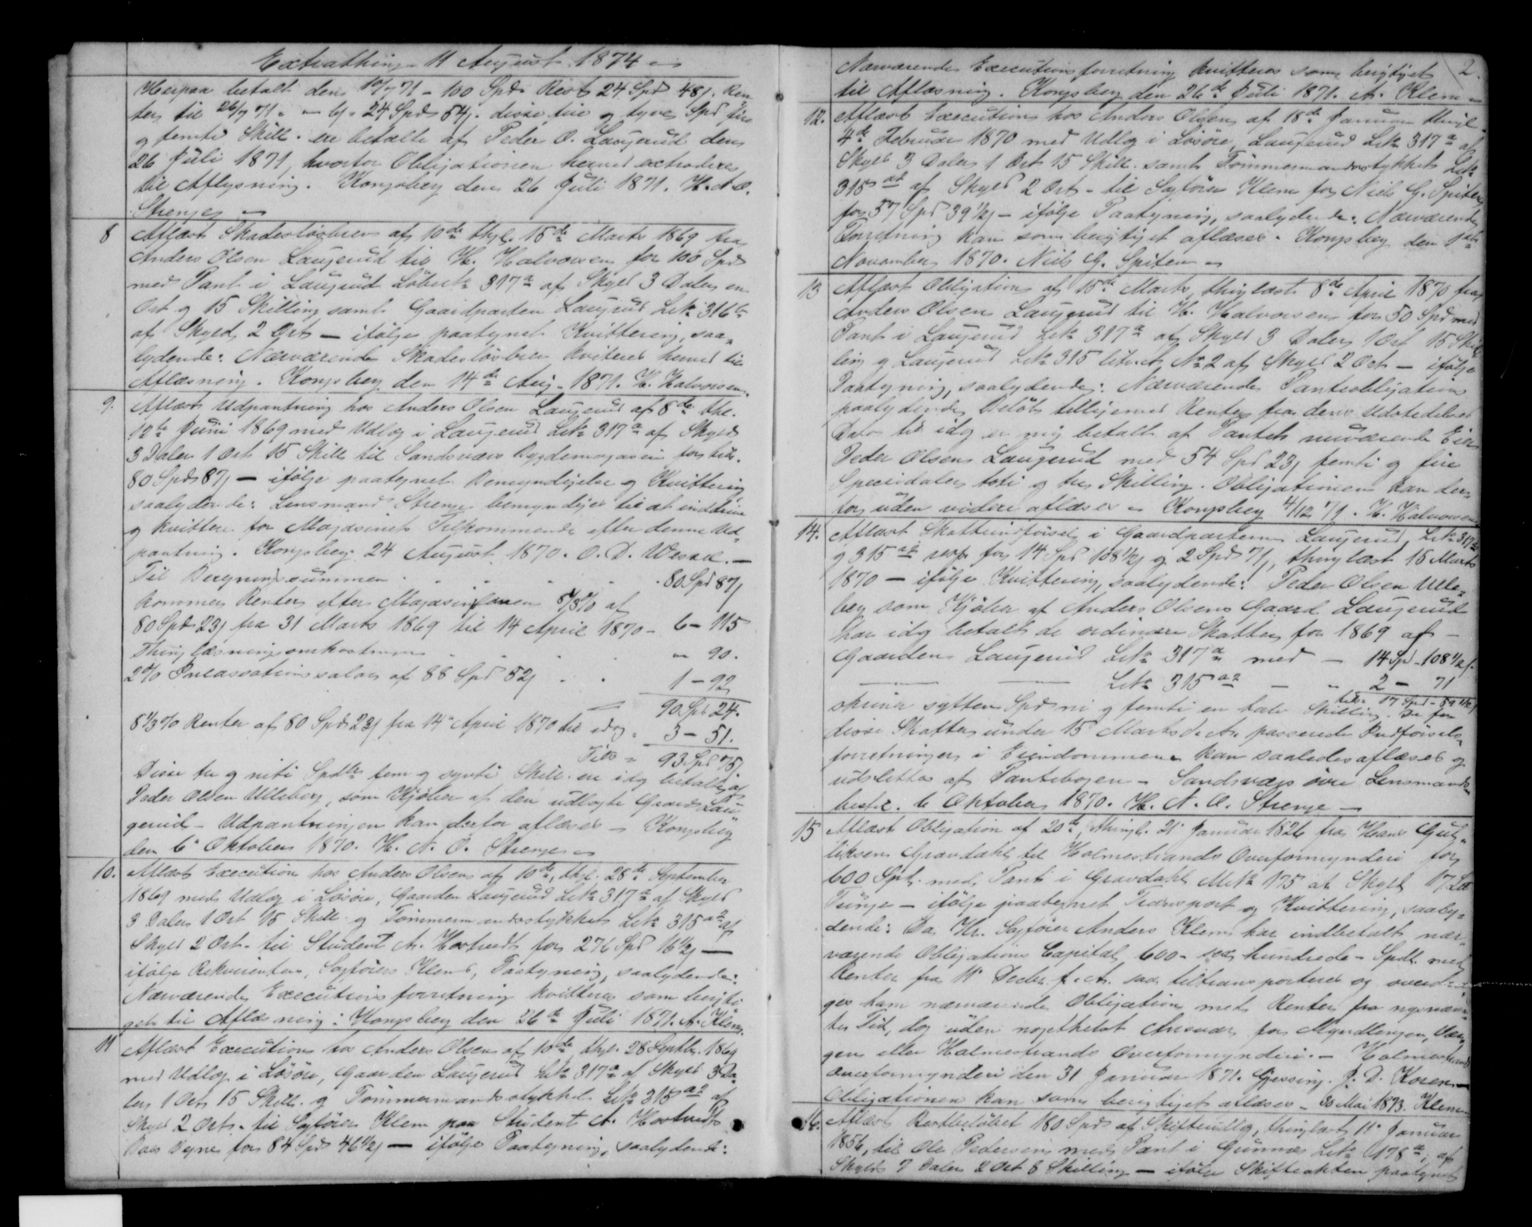 Extrathing 11 August 1874
Herpaa betalt den 10/7 71 - 100 Spd. Rest 24 Spd 48 ſ. Ren
ter til 26/7 71. - 6 ſ. 24 Spd 54 ſ. disse fire og tyve Spd fire
og femti Skill. ere betalte af Peder O. Laugerud den
26 Juli 1871, hvorfor Obligationen herved extraderes
til Aflysning. Kongsberg den 26 Juli 1871. H. N. O.
Strenge
8 Aflæst Skadesløsbrev af 10de thgl. 15de Marts 1869 fra
Anders Olsen Laugerud til H. Halvorsen for 100 Spd
med Pant i Laugerud Løbe No 317a af Skyld 3 Daler en
Ort og 15 Skilling samt Gaardparten Laugerud Lb No 316
af Skyld 2 Ort - ifølge paategnet Kvittering, saa
lydende: Nærværende Skadesløsbrev kviteres herved til
Aflæsning. Kongsberg den 14de Aug. 1871. H. Halvorsen.
9. Aflæst Udpantning hos Anders Olsen Laugerud af 8de thl.
12te Juni 1869 med Udlæg i Laugerud Lb No 317a af Skyld
3 Daler 1 Ort 15 Skill. til Sandsværs Bygdemagasin for
80 Spd 87 ſ - ifølge paategnet Bemyndigelse og Kvittering
saalydende: Lensmand Strenge bemyndiges til at inddrive
og kvittere for Magasinets Tilkommende efter denne Ud-
pantning. Kongsberg 24 August 1870. O. D. Wessel. -
Til Beregningssummen . . . 80 Spd 87 ſ
kommer Renter efter Magasinloven 8 1/3 % af
80 Spd 23 ſ fra 31 Marts 1869 til 14 April 1870 - 6 - 115
Thinglæsningsomkostninger . . . " 90.
2 % Incassationssalær af 88 Spd 52 ſ . . 1 - 92
90 Spd 24.
8 1/3 % Renter af 80 Spd 23 ſ fra 14 April 1870 til idag. 3 - 51.
Tils. 93 Spd 75 ſ
Disse tre og niti Spdlr fem og sytti Skill. er idag betalt af
Peder Olsen Ulleberg, som Kjøber af den udlagte Gaard Lau
gerud - Udpantningen kan derfor aflæses - Kongsberg
den 6 Oktober 1870. H. N. O. Strenge
10. Aflæst Execution hos Anders Olsen af 10de, thgl. 28de September
1869 med Udlæg i Løsøre, Gaarden Laugerud Lb No 317a af Skyld
3 Daler 1 Ort 15 Skill. og Tømmermandsstykket Lb No 315 a2 af
Skyld 2 Ort - til Student A. Hostvedt for 276 Spd 16 ½ ſ -
ifølge Rekvirenten, Sagfører Klems, Paategning, saalydende:
Nærværende Executionsforretning kvitteres som berigti
get til Aflæsning: Kongsberg den 26de Juli 1871. A. Klem.
11 Aflæst Execution hos Anders Olsen af 10de thgl. 28 Septbr. 1869
med Udlæg i Løsøre, Gaarden Laugerud Lb No 317a af Skyld 3 Da
ler 1 Ort 15 Skill. og Tømmermandsstykket Lb No 315 a2 af
Skyld 2 Ort - til Sagfører Klem paa Student A. Hostvedts
Vegne for 84 Spd 46 ½ ſ - ifølge Paategning, saalydende:
2.
Nærværende Executionsforretning kvitteres som berigtiget
til Aflæsning. Kongsberg den 26de Juli 1871. A. Klem
12. Aflæst Execution hos Anders Olsen af 18de Januar thgl.
4de Februar 1870 med Udlæg i Løsøre, Laugerud Lb No 317a af
Skyld 3 Daler 1 Ort 15 Skill. samt Tømmermandsstykket Lb No
315 a2 af Skyld 2 Ort - til Sagfører Klem for Niels G. Spiten
for 57 Spd 39 ½ ſ - ifølge Paategning, saalydende: Nærværende
Forretning kan som berigtiget aflæses. Kongsberg den 1ste
November 1870. Niels G. Spiten
13 Aflæst Obligation af 15de Marts, thinglæst 8de April 1870 fra
Anders Olsen Laugerud til H. Halvorsen for 50 Spd med
Pant i Laugerud Lb No 317a af Skyld 3 Daler 1 Ort 15 Skil
ling og Laugerud Lb No 315 litr. a, No 2 af Skyld 2 Ort - ifølge
Paategning, saalydende: Nærværende Panteobligations
paalydende Beløb tilligemed Renter fra dens Udstedelses
Dato til idag er mig betalt af Pantets nuværende Eier
Peder Olsen Laugerud med 54 Spd 23 ſ femti og fire
Speciedaler toti og tre Skilling. Obligationen kan der-
for uden videre aflæses - Kongsberg 4/12 71. H. Halvorsen
14. Aflæst Skatteudførsel i Gaardparterne Laugerud, Lb No 317a
og 315 a2 resp. for 14 Spd 108 ½ ſ og 2 Spd 71 ſ, thinglæst 15 Marts
1870 - ifølge Kvittering, saalydende: Peder Olsen Ulle-
berg som Kjøber af Anders Olsens Gaard Laugerud
har idag betalt de ordinære Skatter for 1869 af -
Gaarden Laugerud Lb No 317a med - 14 Spd - 108 ½ ſ.
Lb No 315 a2 - " 2 - 71
tils. 17 Spd - 59 ½ ſ
skriver sytten Spd ni og femti en halv Skilling. De for
disse Skatter under 15 Marts d. A. passerede Udførsels-
forretninger i Eiendommene kan saaledes aflæses og
udslettes af Pantebogen - Sandsværs øvre Lensmands-
bestl. 6 Oktober 1870. H. N. O. Strenge -
15 Aflæst Obligation af 20de, thingl. 21 Januar 1826 fra Hans Gul
liksen Gravdahl til Holmestrands Overformynderi for
600 Spd. med Pant i Gravdahl M No 175 at Skyld 17 Lb
Tunge - ifølge paategnet Transport og Kvittering, saaly-
dende: Da Hr. Sagfører Anders Klem har indbetalt nær-
værende Obligations Capital, 600 - sex hundrede - Spdlr. med
Renter fra 11 Decbr. f. A. saa tiltransporteres og overdra
ges ham nærværende Obligation med Renter fra nysnævn
te Tid, dog uden nogetsomhelst Ansvar for Myndlingen, Vær
gen eller Holmestrands Overformynderi. - Holmestrands
Overformynderi den 31 Januar 1871. Gjessing. J. D. Koren. -
Obligationen kan som berigtiget aflæses - 30 Mai 1873. Klem
16. Aflæst Restbeløbet 180 Spd af Skifteudlæg, thinglæst 11 Januar
1856, til Ole Pedersen med Pant i Gunnes Lb No 178a, af
Skyld 7 Daler 2 Ort 8 Skilling - ifølge Skifteakten paategnet